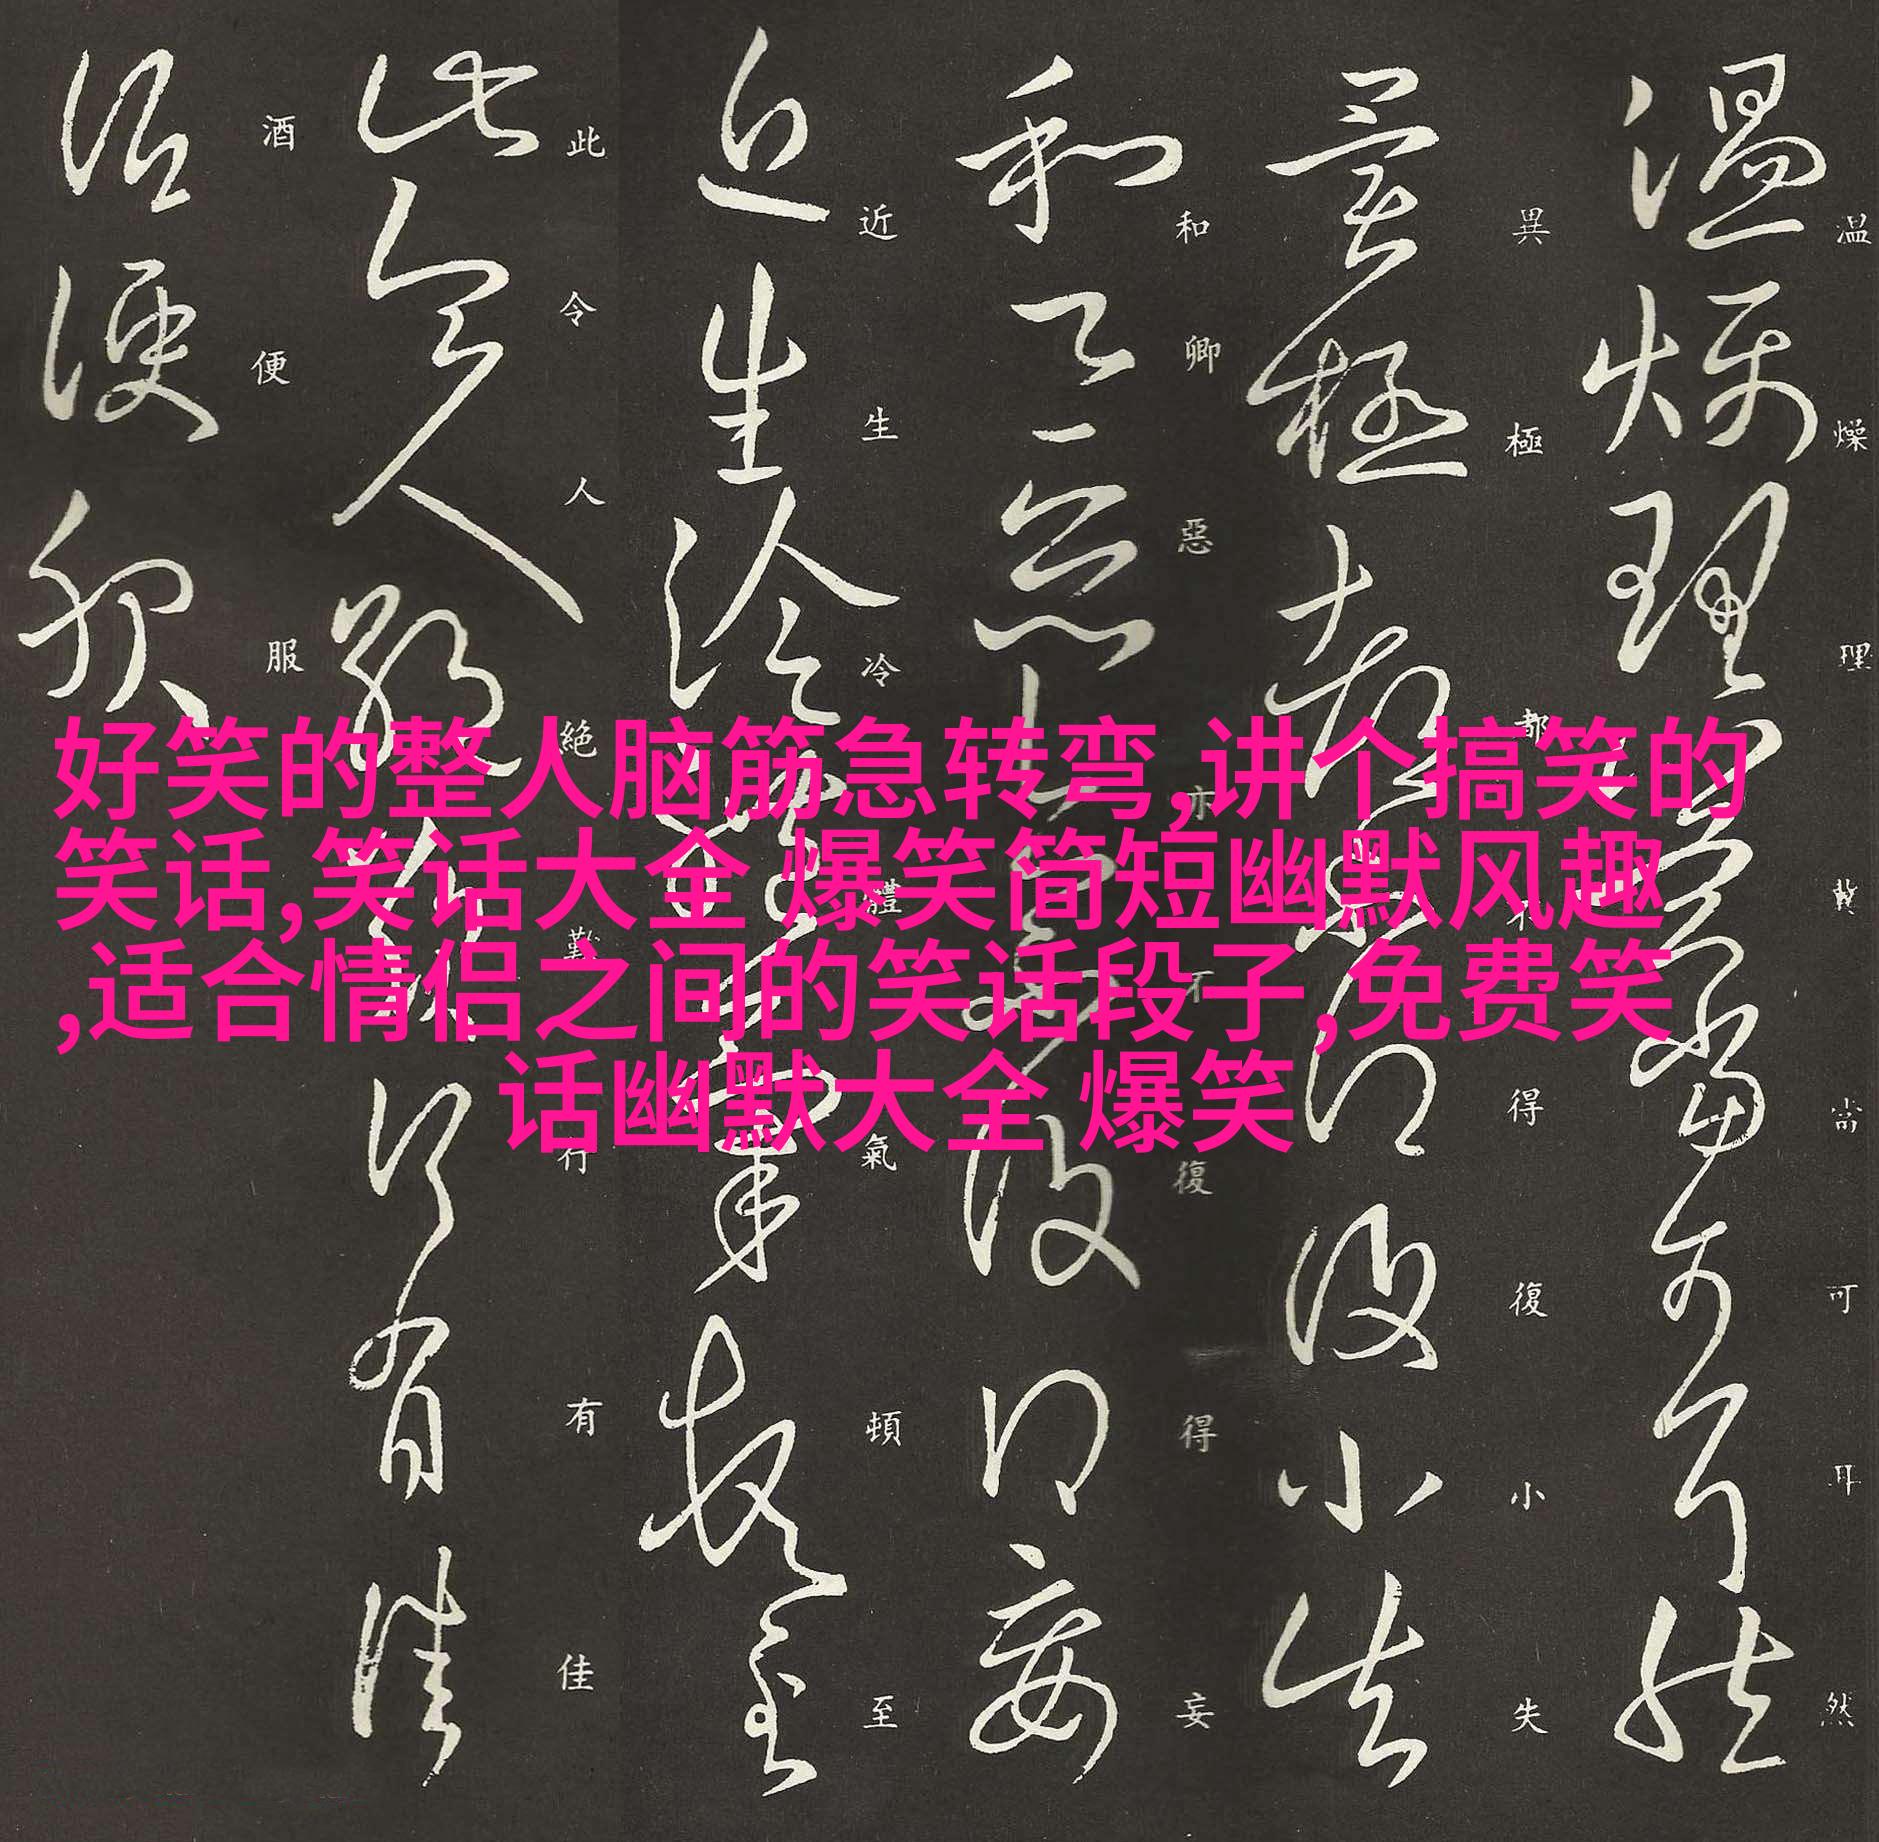 温燥理冀當可耳然
異極都不得復小失
和卿惡亦不復得妄
近生冷體氣頓至
此令人絶難行有佳
酒便服
好笑的整人脑筋急转弯,讲个搞笑的
笑话,笑话大全 爆笑简短幽默风趣
,适合情侣之间的笑话段子,免费笑
话幽默大全 爆笑